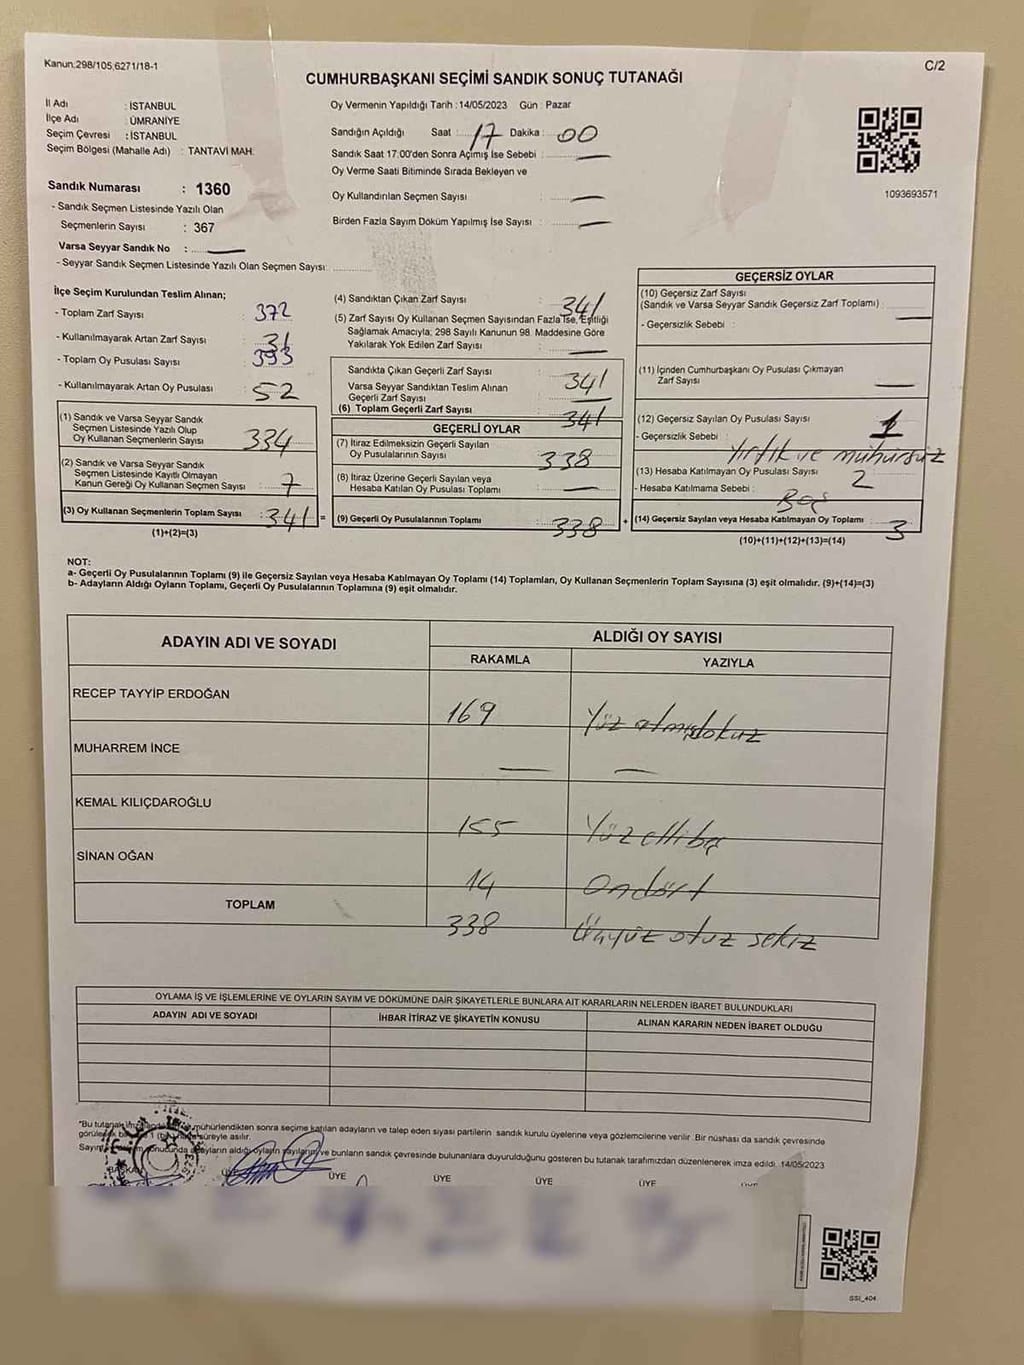 Kanun:298/105,6271/18-1
C/2
CUMHURBAŞKANI SEÇİMİ SANDIK SONUÇ TUTANAĞI
İl Adı : İSTANBUL
İlçe Adı : ÜMRANİYE
Seçim Çevresi : İSTANBUL
Seçim Bölgesi (Mahalle Adı) : TANTAVİ MAH.
Sandık Numarası : 1360
- Sandık Seçmen Listesinde Yazılı Olan
Seçmenlerin Sayısı : 367
Varsa Seyyar Sandık No : —
- Seyyar Sandık Seçmen Listesinde Yazılı Olan Seçmen Sayısı:
Oy Vermenin Yapıldığı Tarih : 14/05/2023 Gün : Pazar
Sandığın Açıldığı Saat : 17 Dakika : 00
Sandık Saat 17.00'den Sonra Açılmış İse Sebebi : —
Oy Verme Saati Bitiminde Sırada Bekleyen ve
Oy Kullandırılan Seçmen Sayısı : —
Birden Fazla Sayım Döküm Yapılmış İse Sayısı : —
1093693571
İlçe Seçim Kurulundan Teslim Alınan;
- Toplam Zarf Sayısı : 372
- Kullanılmayarak Artan Zarf Sayısı : 31
- Toplam Oy Pusulası Sayısı : 393
- Kullanılmayarak Artan Oy Pusulası : 52
(1) Sandık ve Varsa Seyyar Sandık
Seçmen Listesinde Yazılı Olup
Oy Kullanan Seçmenlerin Sayısı : 334
(2) Sandık ve Varsa Seyyar Sandık
Seçmen Listesinde Kayıtlı Olmayan
Kanun Gereği Oy Kullanan Seçmen Sayısı : 7
(3) Oy Kullanan Seçmenlerin Toplam Sayısı : 341 =
(1)+(2)=(3)
(4) Sandıktan Çıkan Zarf Sayısı : 341
(5) Zarf Sayısı Oy Kullanan Seçmen Sayısından Fazla İse, Eşitliği
Sağlamak Amacıyla; 298 Sayılı Kanunun 98. Maddesine Göre
Yakılarak Yok Edilen Zarf Sayısı : —
Sandıkta Çıkan Geçerli Zarf Sayısı : 341
Varsa Seyyar Sandıktan Teslim Alınan
Geçerli Zarf Sayısı : —
(6) Toplam Geçerli Zarf Sayısı : 341
GEÇERLİ OYLAR
(7) İtiraz Edilmeksizin Geçerli Sayılan
Oy Pusulalarının Sayısı : 338
(8) İtiraz Üzerine Geçerli Sayılan veya
Hesaba Katılan Oy Pusulası Toplamı : —
(9) Geçerli Oy Pusulalarının Toplamı : 338 +
GEÇERSİZ OYLAR
(10) Geçersiz Zarf Sayısı
(Sandık ve Varsa Seyyar Sandık Geçersiz Zarf Toplamı) : —
- Geçersizlik Sebebi :
(11) İçinden Cumhurbaşkanı Oy Pusulası Çıkmayan
Zarf Sayısı : —
(12) Geçersiz Sayılan Oy Pusulası Sayısı : 1
- Geçersizlik Sebebi : Yırtık ve mühürsüz
(13) Hesaba Katılmayan Oy Pusulası Sayısı : 2
- Hesaba Katılmama Sebebi : Boş
(14) Geçersiz Sayılan veya Hesaba Katılmayan Oy Toplamı : 3
(10)+(11)+(12)+(13)=(14)
NOT:
a- Geçerli Oy Pusulalarının Toplamı (9) ile Geçersiz Sayılan veya Hesaba Katılmayan Oy Toplamı (14) Toplamları, Oy Kullanan Seçmenlerin Toplam Sayısına (3) eşit olmalıdır. (9)+(14)=(3)
b- Adayların Aldığı Oyların Toplamı, Geçerli Oy Pusulalarının Toplamına (9) eşit olmalıdır.
ADAYIN ADI VE SOYADI
ALDIĞI OY SAYISI
RAKAMLA YAZIYLA
RECEP TAYYİP ERDOĞAN 169 Yüz atmışdokuz
MUHARREM İNCE — —
KEMAL KILIÇDAROĞLU 155 Yüzellibeş
SİNAN OĞAN 14 Ondört
TOPLAM 338 Üçyüz otuz sekiz
OYLAMA İŞ VE İŞLEMLERİNE VE OYLARIN SAYIM VE DÖKÜMÜNE DAİR ŞİKAYETLERLE BUNLARA AİT KARARLARIN NELERDEN İBARET BULUNDUKLARI
ADAYIN ADI VE SOYADI İHBAR İTİRAZ VE ŞİKAYETİN KONUSU ALINAN KARARIN NEDEN İBARET OLDUĞU
"Bu tutanak mühürlendikten sonra seçime katılan adayların ve talep eden siyasi partilerin sandık kurulu üyelerine veya gözlemcilerine verilir. Bir nüshası da sandık çevresinde
süreyle asılır.
adayların aldığı oyların sayılarını ve bunların sandık çevresinde bulunanlara duyurulduğunu gösteren bu tutanak tarafımızdan düzenlenerek imza edildi. 14/05/2023
BAŞKAN ÜYE ÜYE ÜYE ÜYE
GSI_404